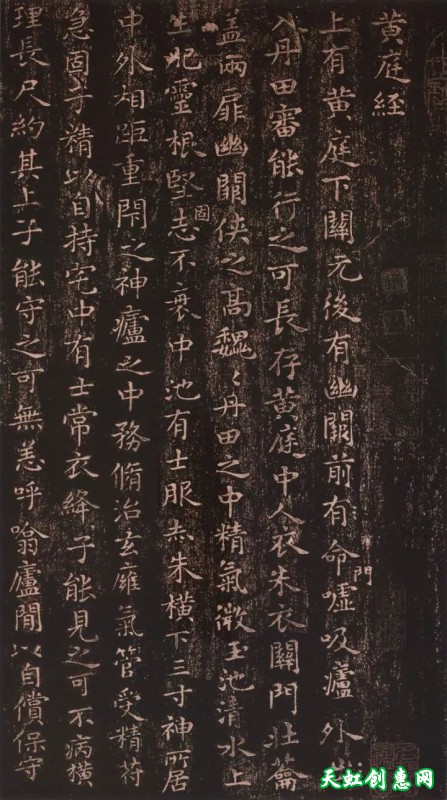 黄庭經
上有黄庭下關元後有幽闕前有命門嘘吸廬外出
入丹田審能行之可長存黄庭中人衣朱衣關門壯籥
蓋兩扉幽闕俠之高巍〻丹田之中精氣微玉池清水上
生肥靈根堅固志不衰中池有士服赤朱橫下三寸神所居
中外相距重閇之神廬之中務脩治玄廱氣管受精苻
急固子精以自持宅中有士常衣絳子能見之可不病橫
理長尺約其上子能守之可無恙呼噏廬間以自償保守
天虹创惠网